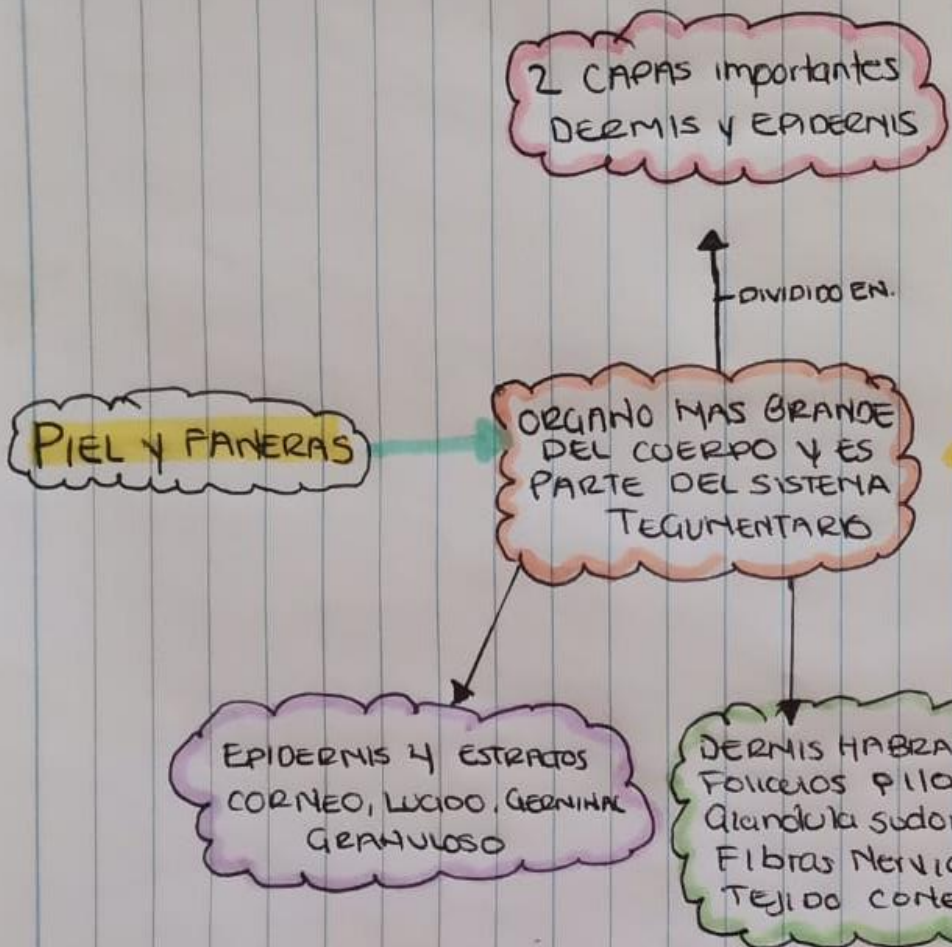 2 CAPAS importantes
DERMIS Y EPIDERNIS
DIVIDIDO EN.
PIEL Y FANERAS
ORGANO MAS GRANDE
DEL CUERPO Y ES
PARTE DEL SISTEMA
TEGUMENTARIO
EPIDERNIS 4 ESTRATOS
CORNEO, LUCIDO, GERMINAL
GRANULOSO
DERMIS HABRA
Foliculos
Glandula
Fibras
TEJIDO